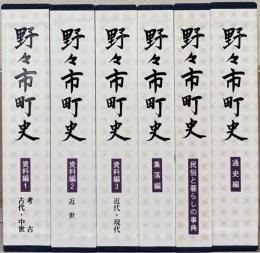 野々市町史
資料編1
考古
古代・中世
野々市町史
資料編2
近世
野々市町史
資料編3
近代・現代
野々市町史
集落編
野々市町史
民俗と暮らしの事典
野々市町史
通史編